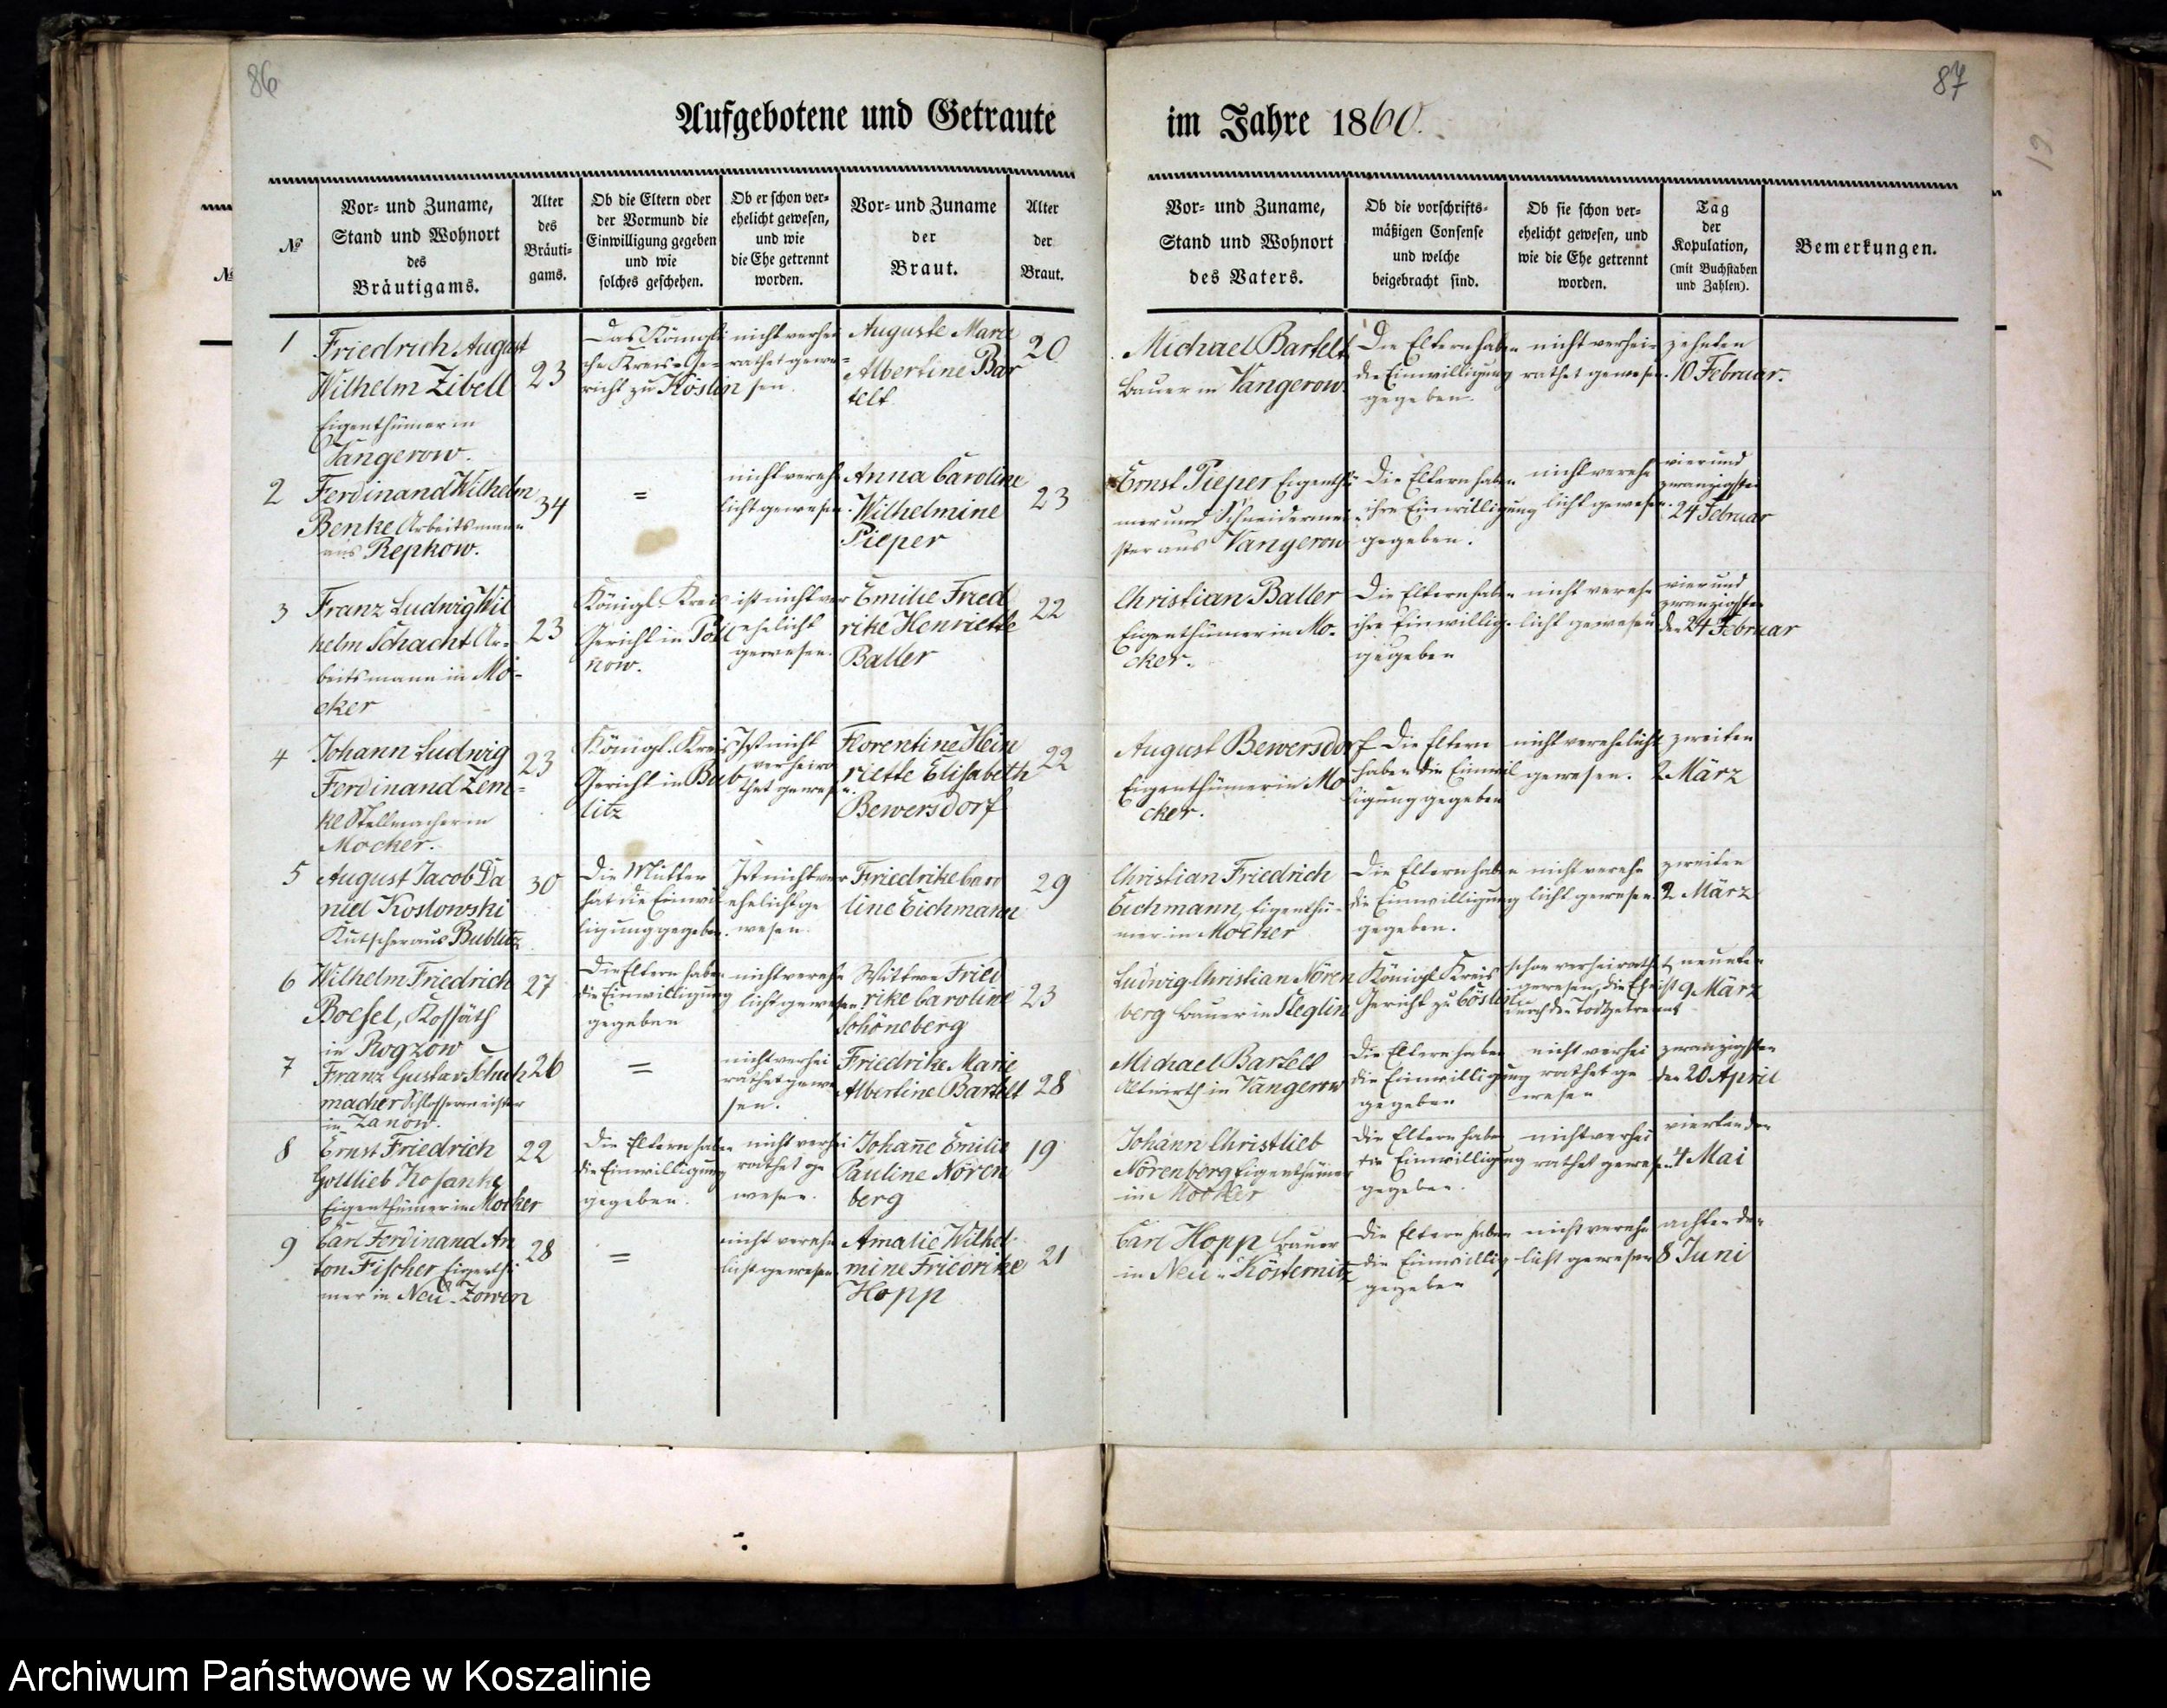 86
87
Aufgebotene und Getraute im Jahre 1860.
№
Vor- und Zuname,
Stand und Wohnort
des
Bräutigams.
Alter
des
Bräuti-
gams.
Ob die Eltern oder
der Vormund die
Einwilligung gegeben
und wie
solches geschehen.
Ob er schon ver-
ehelicht gewesen,
und wie
die Ehe getrennt
worden.
Vor- und Zuname
der
Braut.
Alter
der
Braut.
Vor- und Zuname,
Stand und Wohnort
des Vaters.
Ob die vorschrifts-
mäßigen Consense
und welche
beigebracht sind.
Ob sie schon ver-
ehelicht gewesen, und
wie die Ehe getrennt
worden.
Tag
der
Kopulation,
(mit Buchstaben
und Zahlen).
Bemerkungen.
1
Friedrich August
Wilhelm Zibell
Eigenthümer in
Vangerow.
23
Das Königli
che Kreis-Ge-
richt zu Köslin
nicht verhei
rathet gewe-
sen.
Auguste Marie
Albertine Bar
telt
20
Michael Bartelt
Bauer in Vangerow.
Die Eltern haben
die Einwilligung
gegeben.
nicht verhei-
rathet gewesen.
zehnten
10 Februar.
2
Ferdinand Wilhelm
Benke Arbeitsmann
aus Repkow.
34
=
nicht verehe
licht gewesen.
Anna Caroline
Wilhelmine
Pieper
23
Ernst Pieper Eigenthü
mer und Schneidermei
ster aus Vangerow
Die Eltern haben
ihre Einwilligung
gegeben.
nicht verehe
licht gewesen.
vier und
zwanzigsten
24 Februar
3
Franz Ludwig Wil
helm Schacht Ar-
beitsmann in Mo-
cker
23
Königl. Kreis
Gericht in Poll
now.
ist nicht ver
ehelicht
gewesen.
Emilie Fried
rike Henriette
Baller
22
Christian Baller
Eigenthümer in Mo-
cker.
Die Eltern haben
ihre Einwillig.
gegeben
nicht verehe
licht gewesen
vier und
zwanzigsten
den 24 Februar
4
Johann Ludwig
Ferdinand Zem-
ke Stellmacher in
Mocker.
23
Königl. Kreis
Gericht in Bub
litz
Ist nicht
verheira
thet gewesen.
Florentine Hein
riette Elisabeth
Bewersdorf
22
August Bewersdorf
Eigenthümer in Mo
cker.
Die Eltern
haben die Einwil
ligung gegeben
nicht verehelicht
gewesen.
zweiten
2 März
5
August Jacob Da
niel Koslowski
Kutscher aus Bublitz
30
Die Mutter
hat die Einwil
ligung gegeben.
Ist nicht ver
ehelicht ge
wesen.
Friedrike Caro
line Eichmann
29
Christian Friedrich
Eichmann, Eigenthü-
mer in Mocker
Die Eltern haben
die Einwilligung
gegeben.
nicht verehe
licht gewesen.
zweiten
2 März
6
Wilhelm Friedrich
Boesel, Kossäth
in Rogzow
27
Die Eltern haben
die Einwilligung
gegeben
nicht verehe
licht gewesen
Wittwe Fried
rike Caroline
Schöneberg
23
Ludwig Christian Nören
berg Bauer in Steglin
Königl Kreis
Gericht zu Cöslin
schon verheirathet
gewesen, die Ehe ist
durch den Tod getrennt
neunten
9 März
7
Franz Gustav Schuh
macher Schlossermeister
in Zanow.
26
=
nicht verhei
rathet gewe
sen.
Friedrike Marie
Albertine Bartelt
28
Michael Bartelt
Altwirth in Vangerow
Die Eltern haben
die Einwilligung
gegeben
nicht verhei
rathet ge
wesen
zwanzigsten
den 20 April
8
Ernst Friedrich
Gottlieb Kosanke
Eigenthümer in Mocker
22
Die Eltern haben
die Einwilligung
gegeben.
nicht verhei
rathet ge
wesen.
Johanne Emilie
Pauline Nören
berg
19
Johann Christlieb
Nörenberg Eigenthümer
in Mocker
Die Eltern haben
die Einwilligung
gegeben.
nicht verhei
rathet gewesen
vierten den
4 Mai
9
Carl Ferdinand An
ton Fischer Eigenthü
mer in Neu-Zowen
28
=
nicht verehe
licht gewesen.
Amalie Wilhel
mine Friedrike
Hopp
21
Carl Hopp Bauer
in Neu-Kösternitz
Die Eltern haben
die Einwillig
gegeben
nicht verehe
licht gewesen
achten den
8 Juni
Archiwum Państwowe w Koszalinie